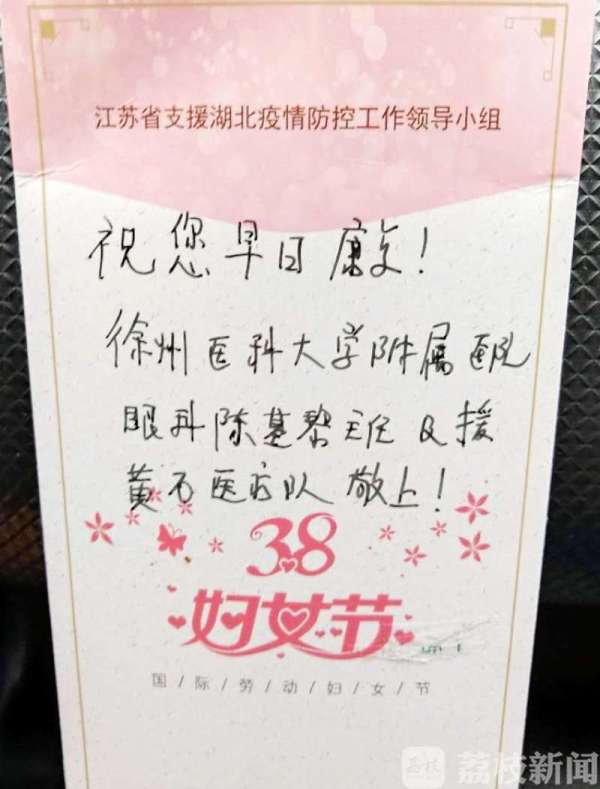 江苏省支援湖北疫情防控工作领导小组
祝您早日康复!
徐州医科大学附属医院
眼科陈基黎主任及援
黄石医疗队 敬上!
3.8
妇女节
国/际/劳/动/妇/女/节
荔枝 荔枝新闻